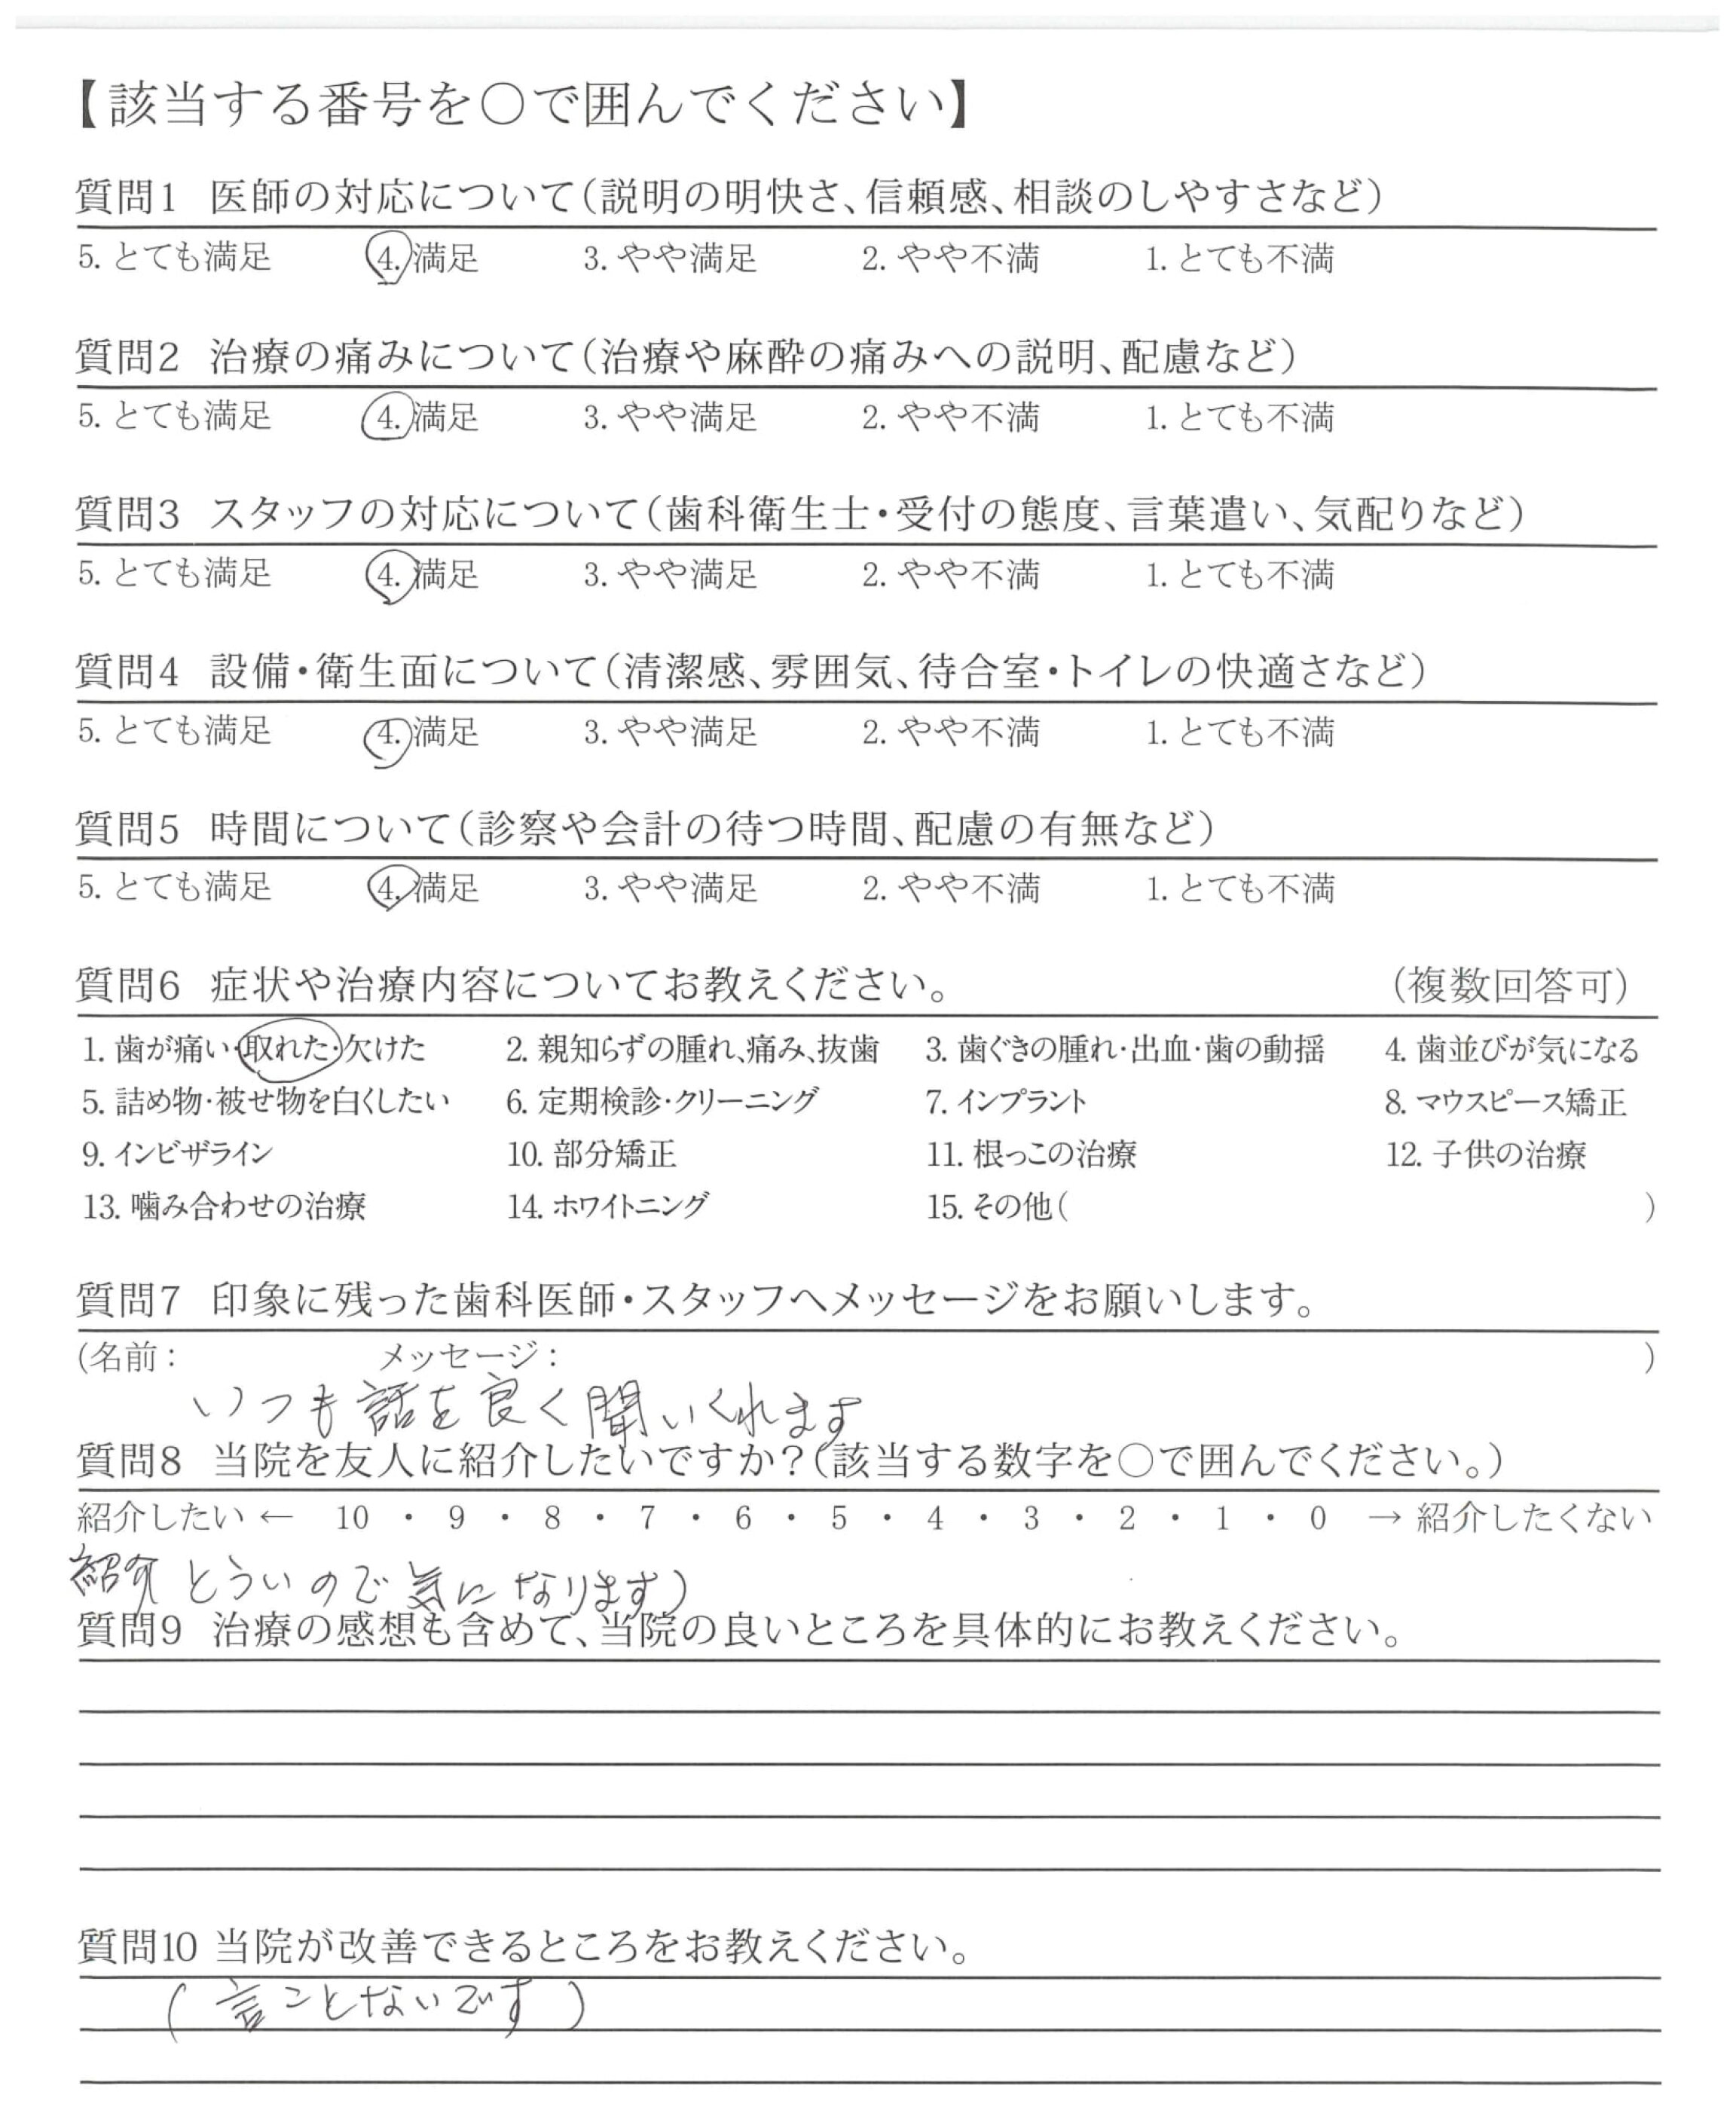 【該当する番号を〇で囲んでください】
質問1 医師の対応について(説明の明快さ、信頼感、相談のしやすさなど)
5. とても満足 4. 満足 3. やや満足 2. やや不満 1. とても不満
質問2 治療の痛みについて(治療や麻酔の痛みへの説明、配慮など)
5. とても満足 4. 満足 3. やや満足 2. やや不満 1. とても不満
質問3 スタッフの対応について(歯科衛生士・受付の態度、言葉遣い、気配りなど)
5. とても満足 4. 満足 3. やや満足 2. やや不満 1. とても不満
質問4 設備・衛生面について(清潔感、雰囲気、待合室・トイレの快適さなど)
5. とても満足 4. 満足 3. やや満足 2. やや不満 1. とても不満
質問5 時間について(診察や会計の待つ時間、配慮の有無など)
5. とても満足 4. 満足 3. やや満足 2. やや不満 1. とても不満
質問6 症状や治療内容についてお教えください。 (複数回答可)
1. 歯が痛い・取れた・欠けた 2. 親知らずの腫れ、痛み、抜歯 3. 歯ぐきの腫れ・出血・歯の動揺 4. 歯並びが気になる
5. 詰め物・被せ物を白くしたい 6. 定期検診・クリーニング 7. インプラント 8. マウスピース矯正
9. インビザライン 10. 部分矯正 11. 根っこの治療 12. 子供の治療
13. 噛み合わせの治療 14. ホワイトニング 15. その他( )
質問7 印象に残った歯科医師・スタッフへメッセージをお願いします。
(名前: メッセージ: )
いつも話を良く聞いくれます
質問8 当院を友人に紹介したいですか?(該当する数字を〇で囲んでください。)
紹介したい ← 10 ・ 9 ・ 8 ・ 7 ・ 6 ・ 5 ・ 4 ・ 3 ・ 2 ・ 1 ・ 0 → 紹介したくない
紹介とういので気になります)
質問9 治療の感想も含めて、当院の良いところを具体的にお教えください。
質問10 当院が改善できるところをお教えください。
(言ことないです)